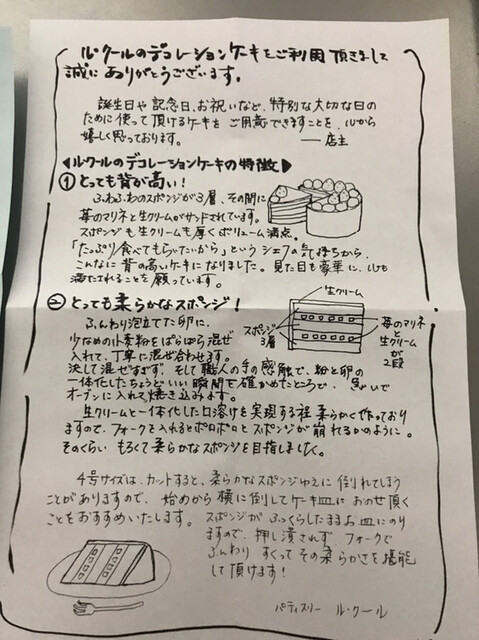 ル・クールのデコレーションケーキをご利用頂きまして
誠にありがとうございます。
誕生日や記念日、お祝いなど、特別な大切な日の
ために使って頂けるケーキをご用意できますことを、心から
嬉しく思っております。 ── 店主
◀ル・クールのデコレーションケーキの特徴▶
① とっても背が高い!
ふわふわのスポンジが3層、その間に
苺のマリネと生クリームがサンドされています。
スポンジも生クリームも厚くボリューム満点。
「たっぷり食べてもらいたいから」という シェフの気持ちから、
こんなに背の高いケーキになりました。見た目も豪華に、心も
満たされることを願っています。
② とっても柔らかなスポンジ!
生クリーム
スポンジ
3層
苺のマリネ
と
生クリーム
が
2段
ふんわり泡立てた卵に、
少なめの小麦粉をぱらぱら混ぜ
入れて、丁寧に混ぜ合わせます。
決して混ぜすぎず、そして職人の手の感触で、粉と卵の
一体化したちょうどいい瞬間を確かめたところで、急いで
オーブンに入れて焼き込みます。
生クリームと一体化した口溶けを実現する程柔らかく作っており
ますので、フォークを入れるとポロポロとスポンジが崩れるかのように。
そのくらいもろくて柔らかなスポンジを目指しました。
4号サイズは、カットすると、柔らかなスポンジゆえに倒れてしまう
ことがありますので、始めから横に倒してケーキ皿におのせ頂く
ことをおすすめいたします。スポンジがふっくらしたままお皿にのり
ますので、押し潰されず、フォークで
ふんわりすくってその柔らかさを堪能
して頂けます!
パティスリー ル・クール